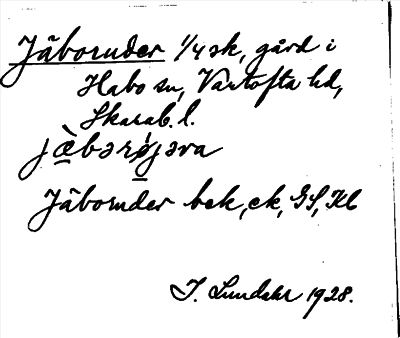 Jäboruder 1/4 sk, gård i
Habo sn, Vartofta hd,
Skarab. l.
jæ̀bərøjəra
Jäboruder bek, ek, GS, Kl
J. Lundahl 1928.